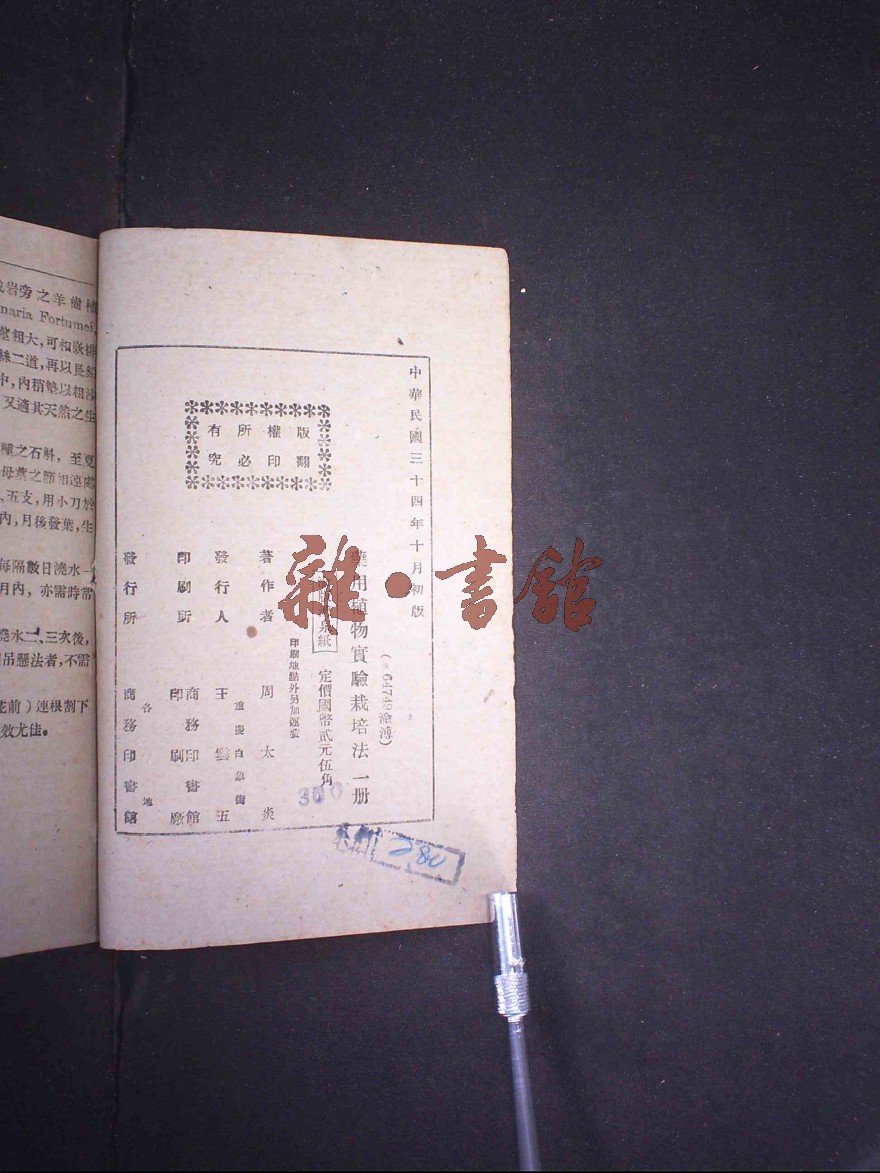 中華民國三十四年十月初版
(64749渝薄)
藥用植物實驗栽培法一册
定價國幣貳元伍角
印刷地點外另加運費
著作者 周太炎
重慶白象街
發行人 王雲五
印刷所 商務印書館
印刷廠
各地
發行所 商務印書館
版權所有
翻印必究
雜·書館
300
280
岩旁之羊齒
naria Fortumei,
莖粗大,可扣嵌
絲二道,再以
中,內稍墊以粗沙
又適其天然之生
種之石斛,至夏
母莖之節
五支,用小刀於
內,月後發葉,生
每隔數日澆水一
月內,亦需時常
澆水二、三次後,
吊懸法者,不需
花前)連根割下
效尤佳。